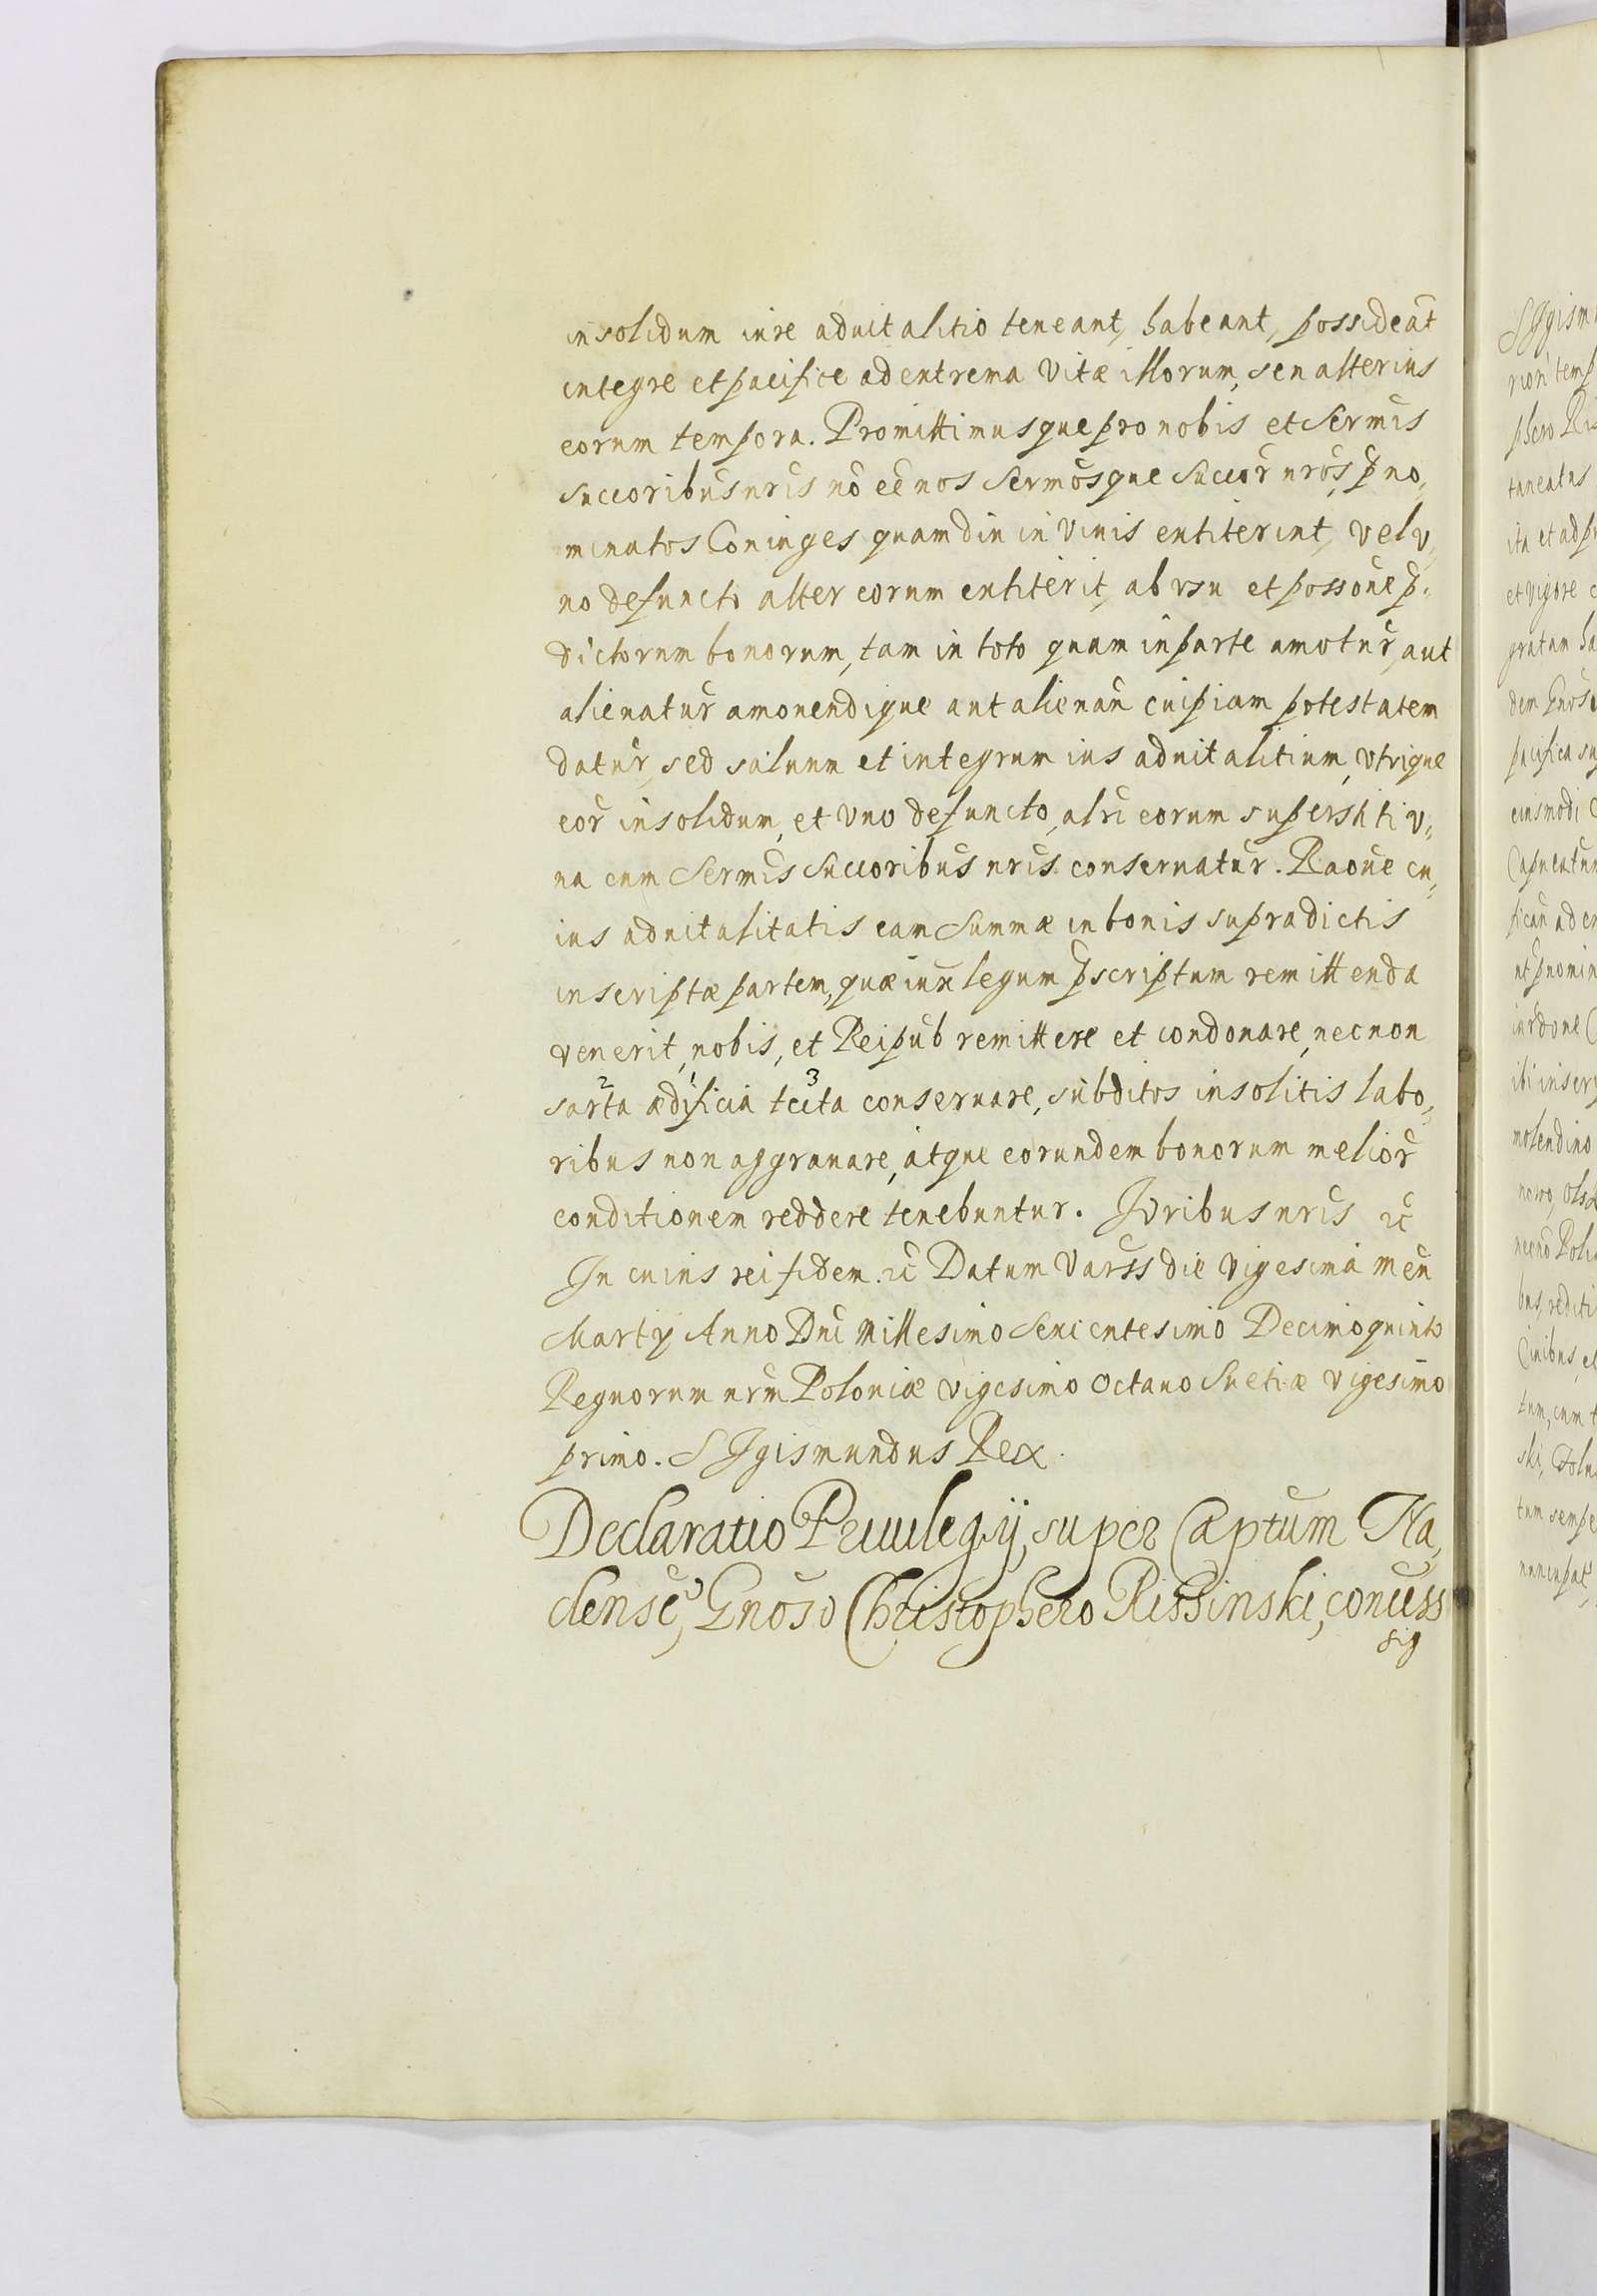 in solidum iure aduitalitio teneant, habeant, possideāt
integre et pacifice ad extrema vitæ illorum, seu alterius
eorum tempora. Promittimusque pro nobis et Sermis
Succoribus nris nō eē nos Sermosque Succor nros, p̄no,
minatos Coniuges quamdiu in viuis extiterint, vel v,
no defuncto alter eorum extiterit, ab vsu et possone p̄,
dictorum bonorum, tam in toto quam in parte amotur, aut
alienatur amouendique aut alienan cuipiam potestatem
datur, sed saluum et integrum ius aduitalitium, vtrique
eor in solidum, et vno defuncto, alri eorum superstiti v,
na cum Sermis Succoribus nris conseruatur. Raoue cu,
ius aduitalitatis eam Summæ in bonis supradictis
inscriptæ partem, quæ iux legum p̄scriptum remittenda
venerit, nobis, et Reipub remittere et condonare, necnon
sarta ædificia tecta conseruare, subditos insolitis labo,
ribus non aggrauare, atque eorundem bonorum melior
conditionem reddere tenebuntur. Iuribus nris ꝛc
In cuius rei fidem ꝛc Datum Varss die vigesima men
Martij Anno Dni Millesimo Sexcentesimo Decimoquinto
Regnorum nrm Poloniæ vigesimo octauo Suetiæ vigesimo
primo. SIgismundus Rex.
Declaratio Priuilegij, super Captum Na,
dense, Gnoso Christophero Rissinski, concess
sig